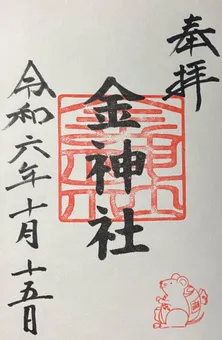 奉拝
金神社
令和六年十月十五日